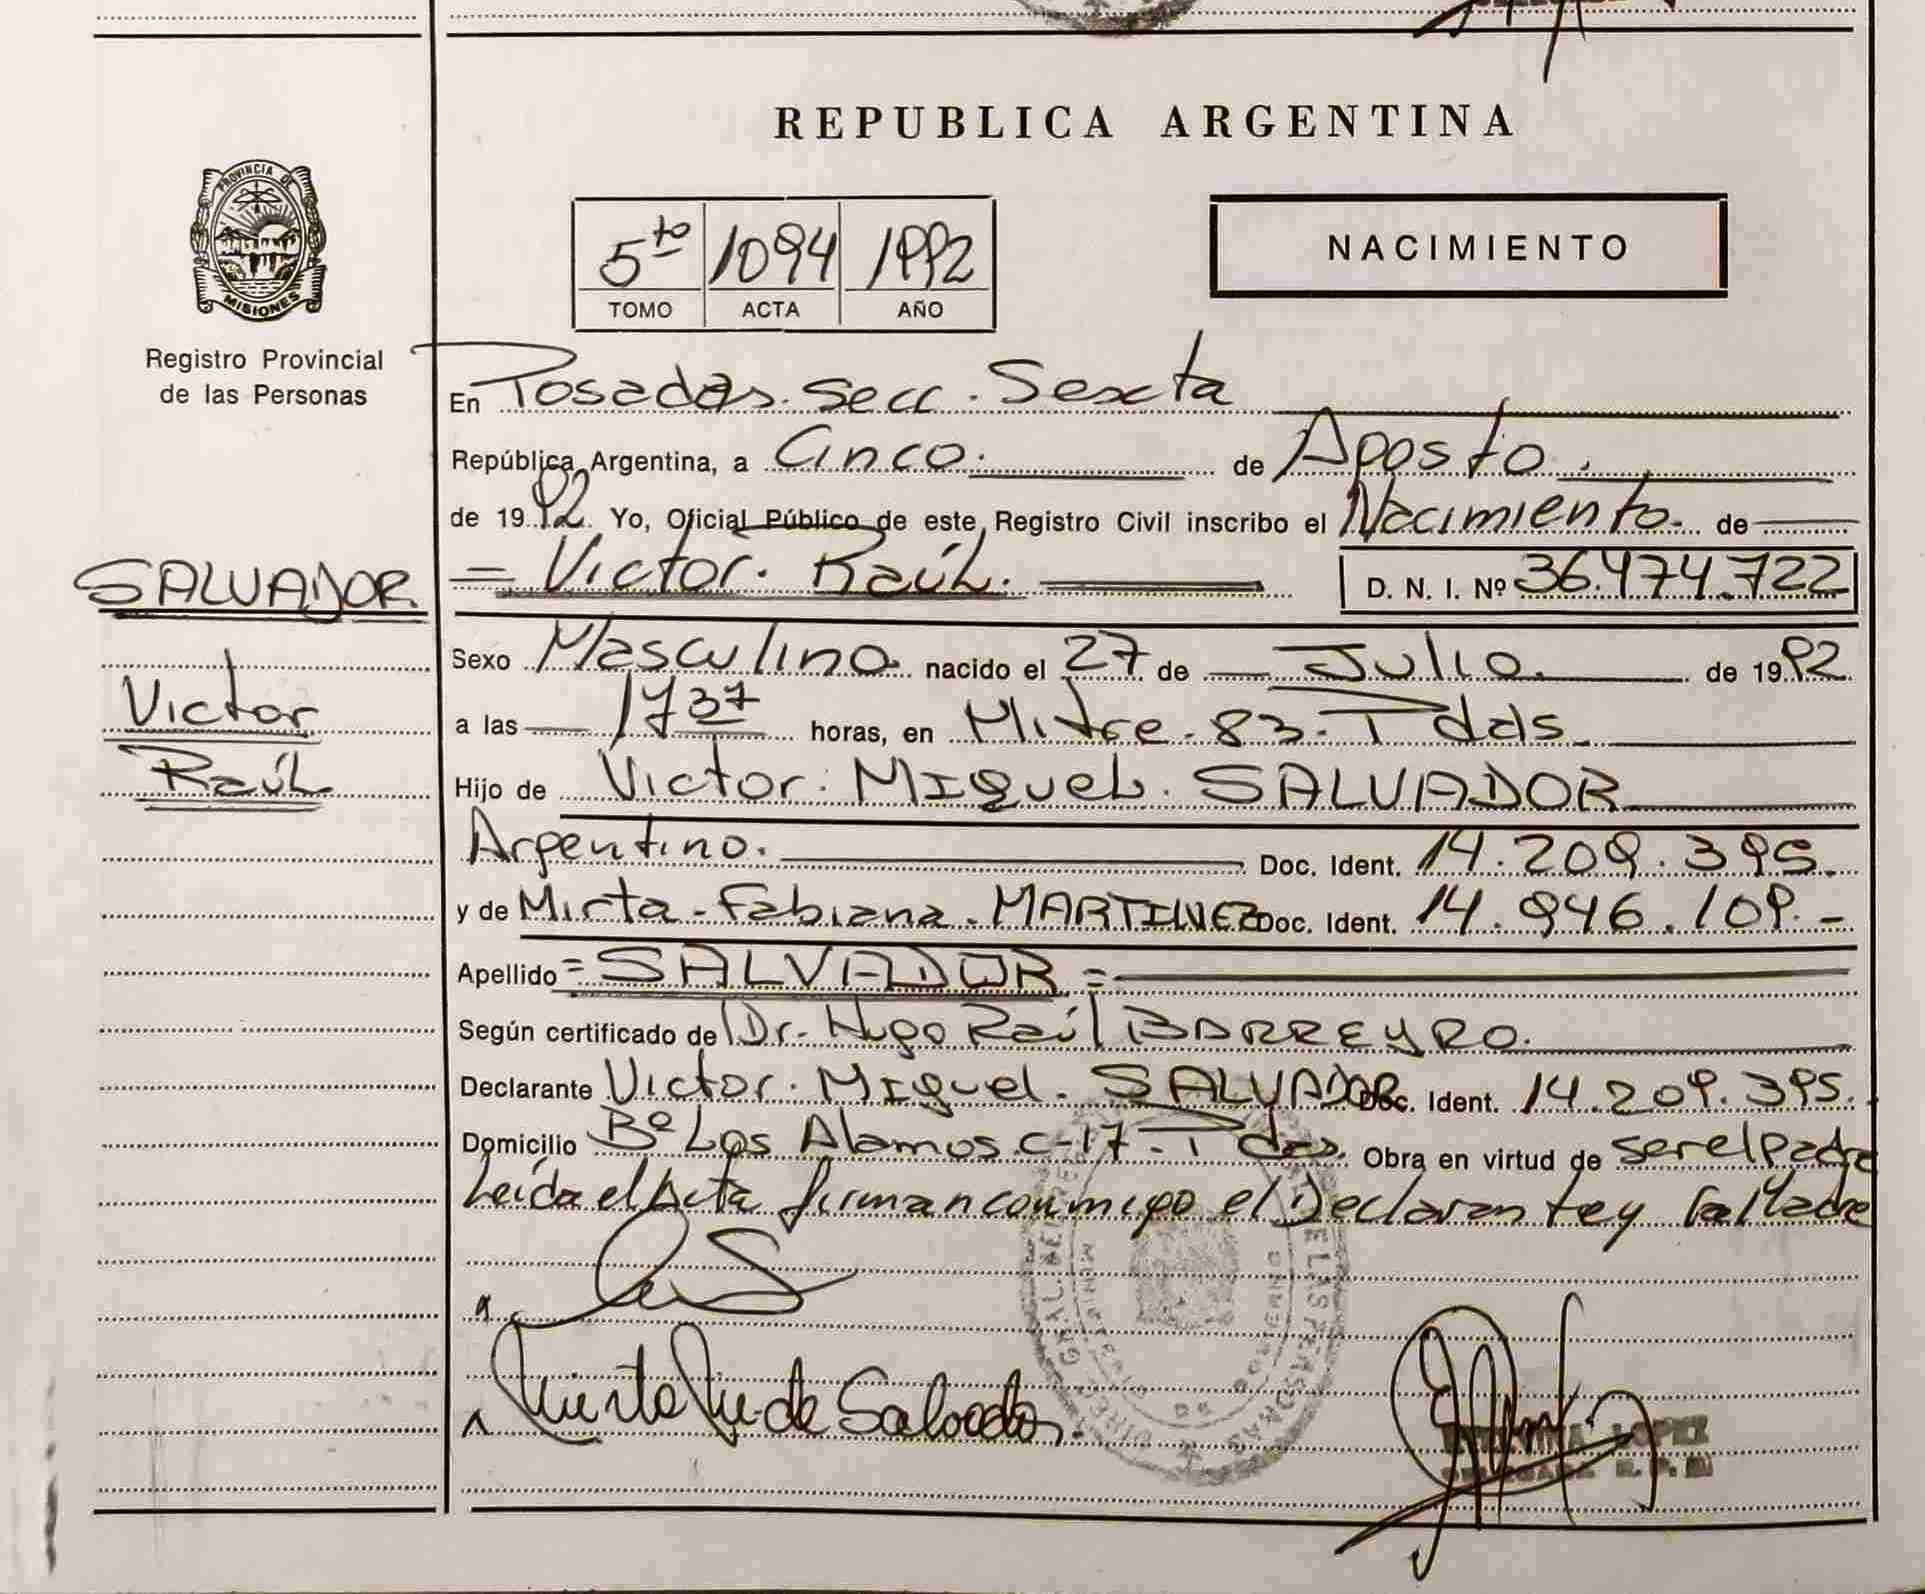 REPUBLICA ARGENTINA
PROVINCIA DE
MISIONES
Registro Provincial
de las Personas
5to 1094 1992
TOMO ACTA AÑO
NACIMIENTO
En Posadas. Secc. Sexta
República Argentina, a Cinco. de Agosto.
de 1992. Yo, Oficial Público de este Registro Civil inscribo el Nacimiento. de
= Victor. Raúl. D. N. I. Nº 36.474.722
SALVADOR
Victor
Raúl
Sexo Masculino. nacido el 27 de Julio. de 1992
a las 1737 horas, en Mitre. 83. Pdas.
Hijo de Victor. Miguel. SALVADOR
Argentino. Doc. Ident. 14.209.395.
y de Mirta. Fabiana. MARTINEZ Doc. Ident. 14.946.109.-
Apellido = SALVADOR =
Según certificado de Dr. Hugo Raúl BARREYRO.
Declarante Victor. Miguel. SALVADOR Doc. Ident. 14.209.395.
Domicilio Bº Los Alamos. C-17. Pdas. Obra en virtud de ser el Padre
Leída el Acta firman conmigo el Declarante y la Madre
de Salvador
LOPEZ